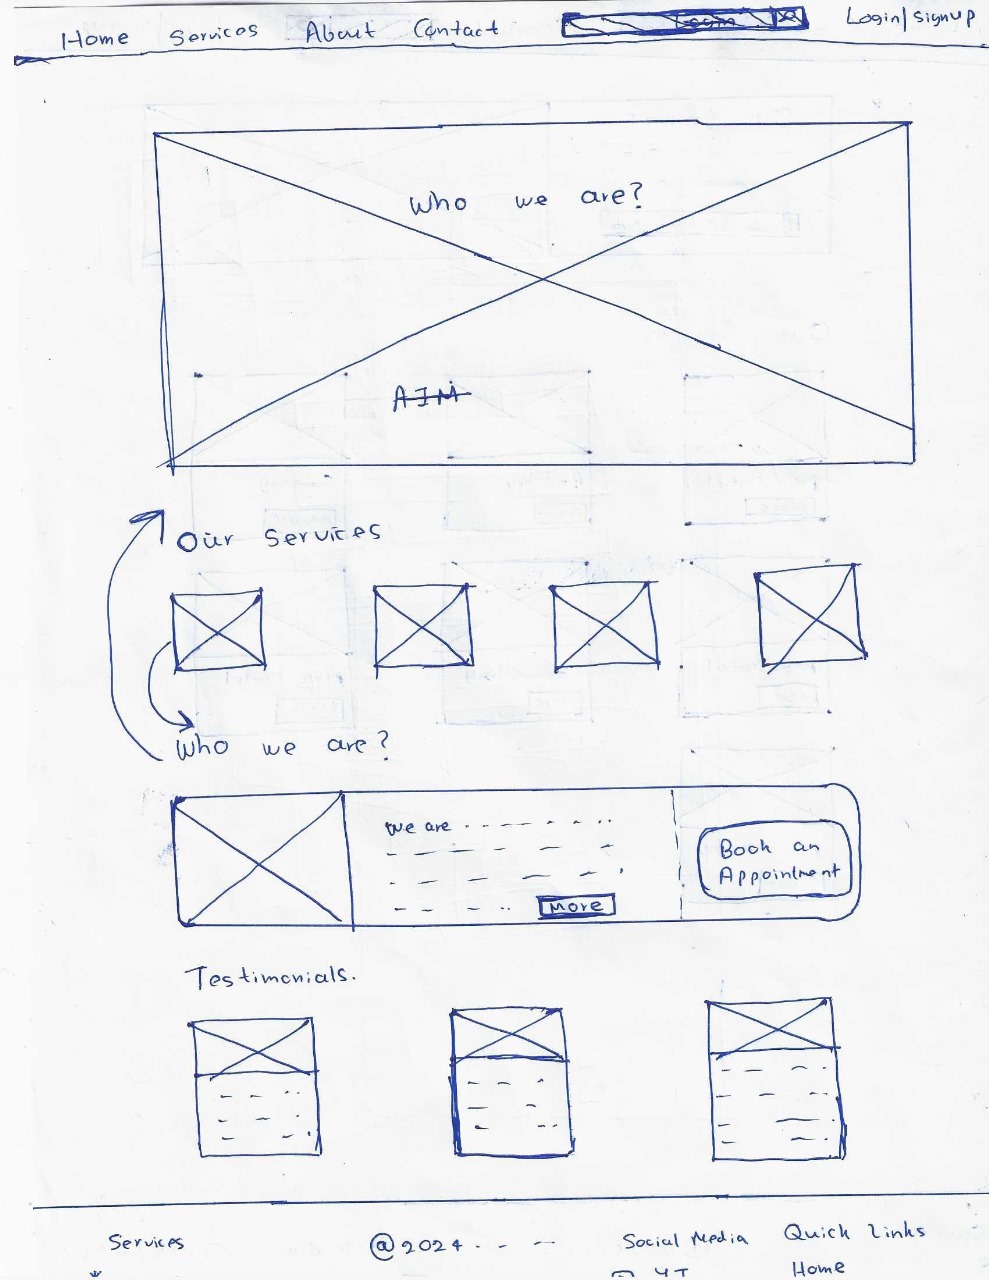 Home Services About Contact Login|Signup
Who we are?
AIM
Our Services
Who we are?
We are
More
Book an
Appointment
Testimonials.
Services @2024 Social Media Quick Links
YT Home